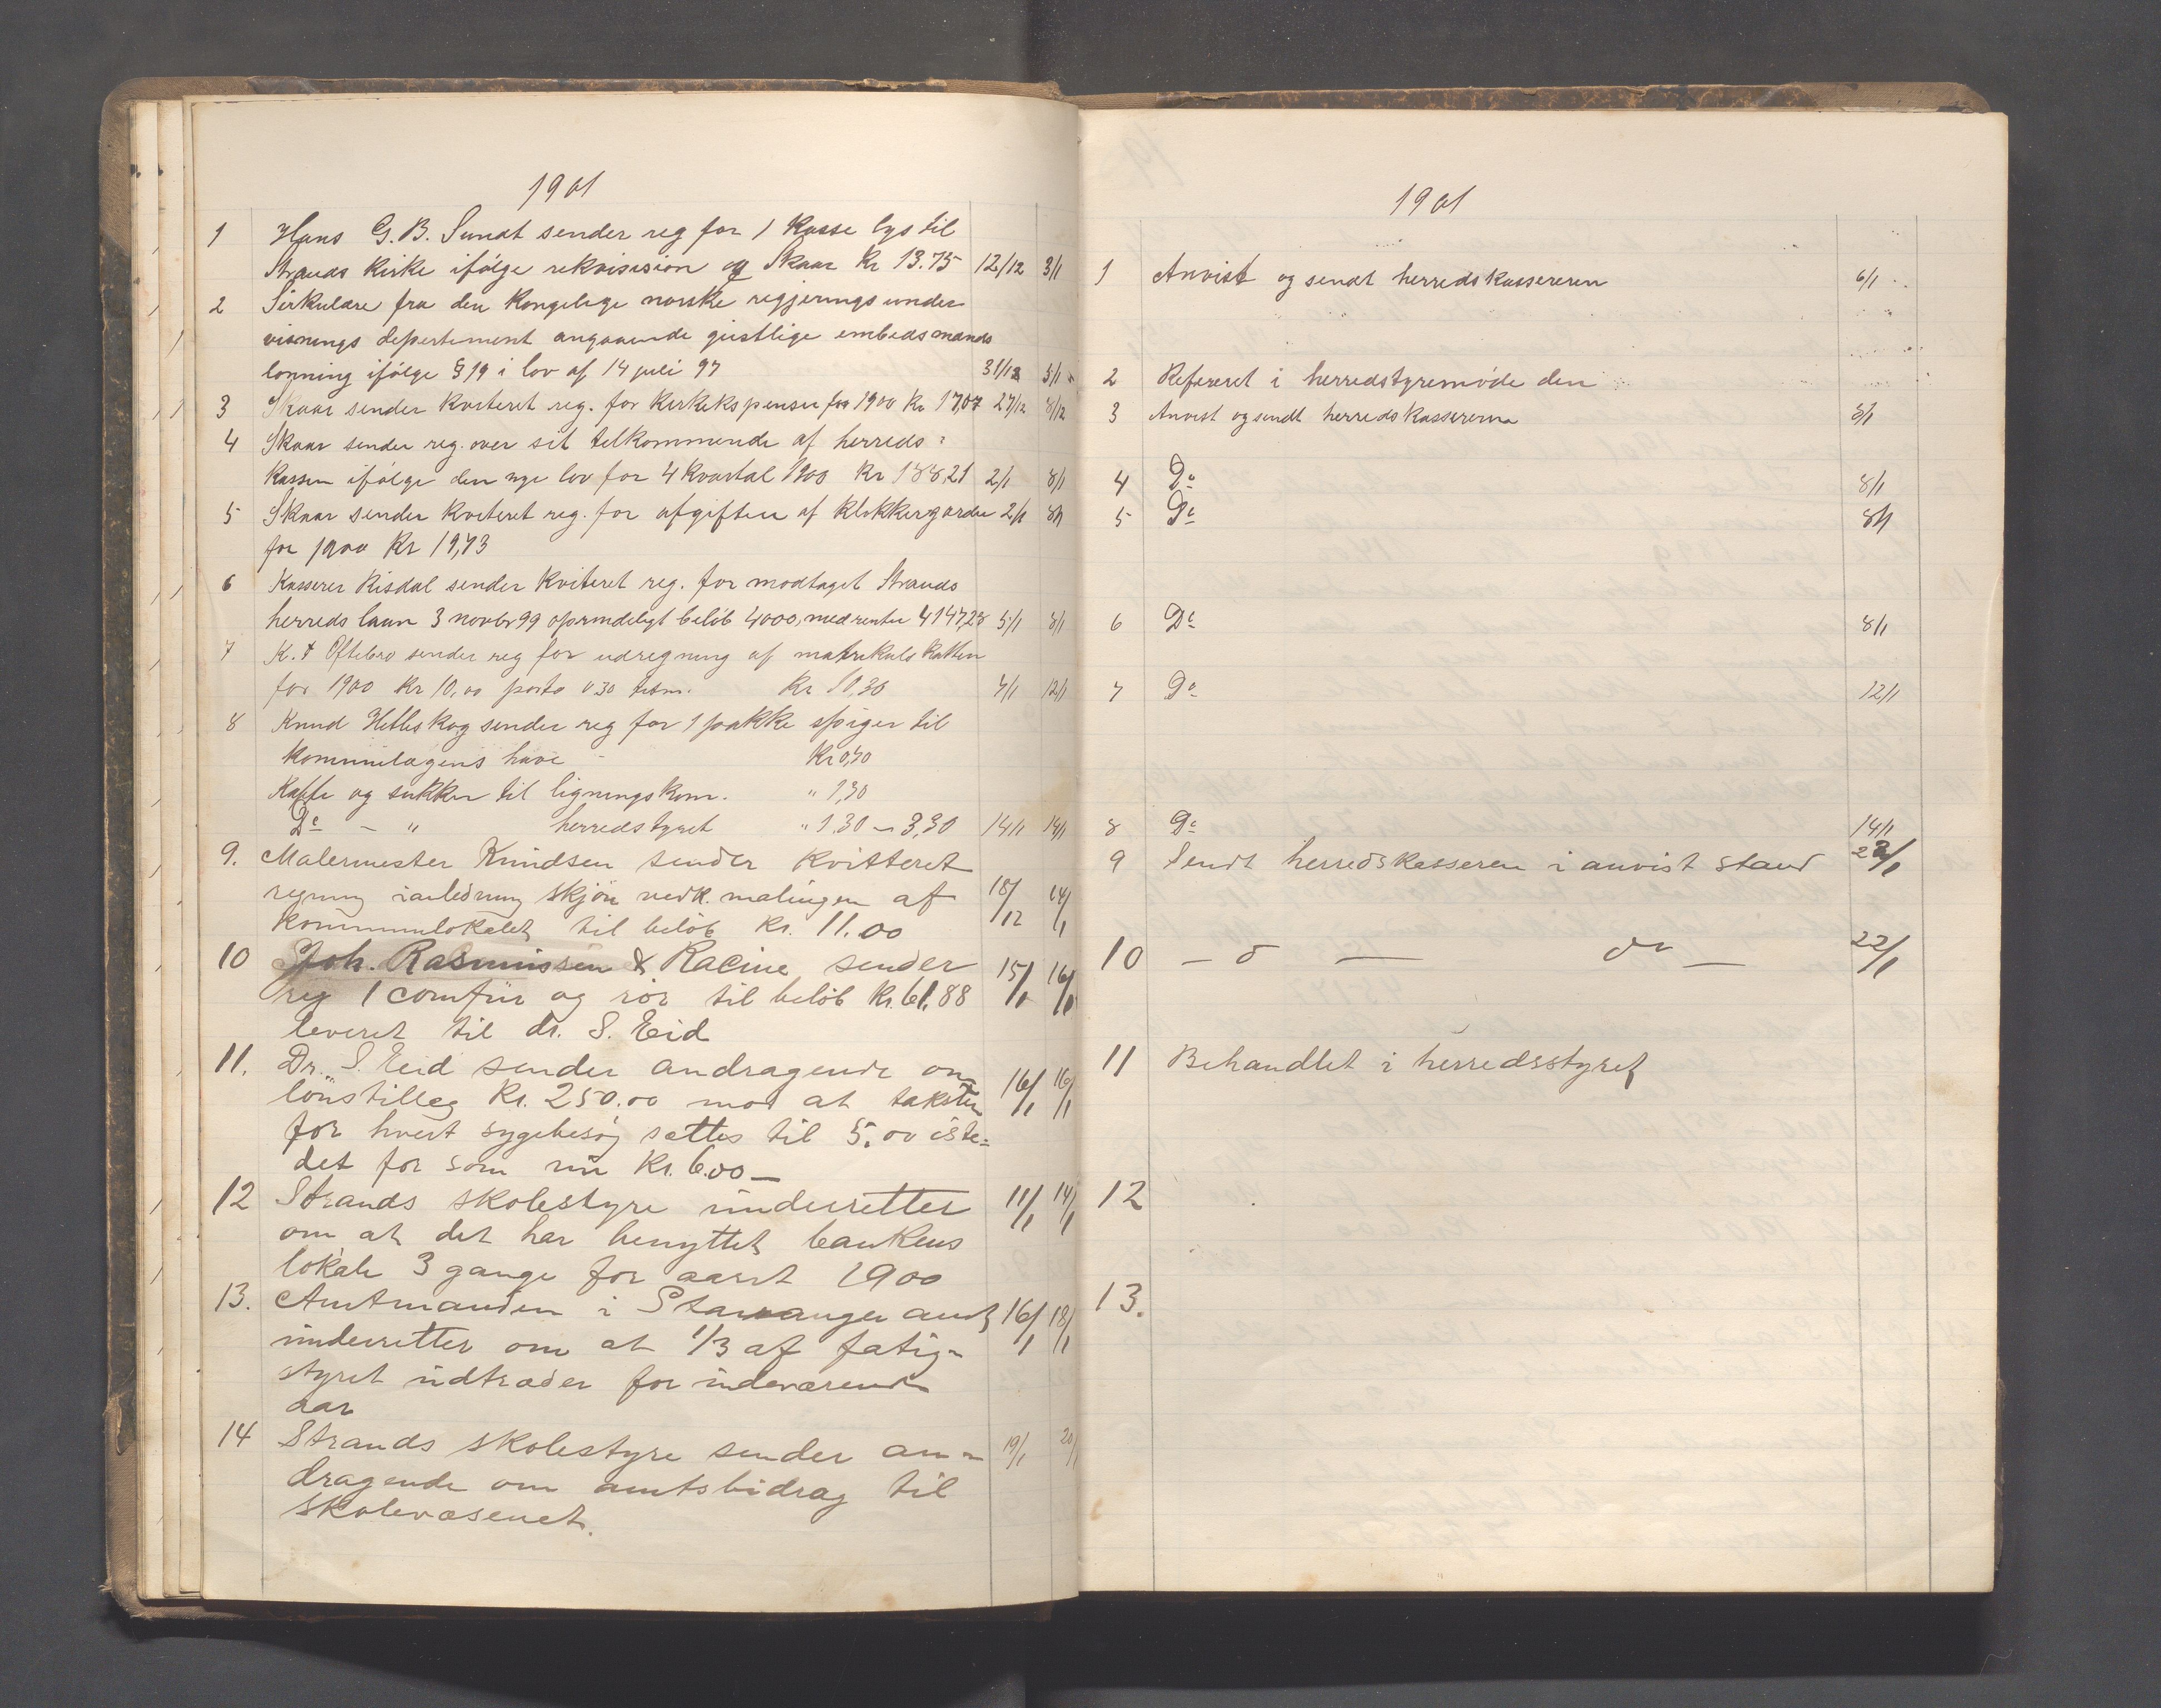 1901
1 Hans G. B. Sundt sender reg for 1 Kasse lys til
Strands Kirke ifølge rekvisision af Skaar Kr 13.75 12/12 3/1
2 Sirkulære fra den Kongelige norske regjerings under
visnings departement angaaende geistlige embedsmænds
lønning ifølge § 19 i lov af 14 juli 97 31/12 5/1
3 Skaar sender kviteret reg. for Kirkekspenser for 1900 Kr 17,07 27/12 8/12
4 Skaar sender reg. over sit tilkommende af herreds=
kassen ifølge den nye lov for 4 Kvartal 1900 Kr 188,21 2/1 8/1
5 Skaar sender kviteret reg. for afgiften af Klokkergarden 2/1 8/1
for 1900 Kr 19,73
6 Kasserer Risdal sender kviteret reg. for modtaget Strands
herreds laan 3 novbr 99 oprindeligt beløb 4000, med renter 4147,28 5/1 8/1
7 K. T Oftebro sender reg for udregning af matrikulskatten
for 1900 Kr 10,00 porto 0.30 tilsm. Kr 10,30 7/1 12/1
8 Knud Hetleskog sender reg for 1 pakke spiger til
kommunelagens have - Kr 0,70
Kaffe og sukker til ligningskom. " 1,30
Do - " herredstyret " 1.30 - 3,30 14/1 14/1
9. Malermester Knudsen sender kvitteret
regning i anledning skjøn vedk. malingen af 18/12 14/1
kommunelokalet til beløb Kr. 11.00
10 Joh. Rasmussen & Racine sender 15/1 16/1
reg 1 comfür og rör til beløb Kr. 61.88
leveret til dr. S. Eid
11. Dr. S. Eid sender andragende om
lönstilleg Kr. 250.00 mod at taksten 16/1 16/1
for hvert sygebesøg sættes til 5.00 iste=
det for som nu Kr. 6.00 -
12 Strands skolestyre underretter 11/1 14/1
om at det har benyttet bankens
lokale 3 gange for aaret 1900
13. Amtmanden i Stavanger amt 16/1 18/1
underretter om at 1/3 af fatig=
styret udtræder for indeværende
aar
14 Strands skolestyre sender an= 19/1 20/1
dragende om amtsbidrag til
skolevæsenet.
1901
1 Anvist og sendt herredskassereren 6/1
2 Refereret i herredstyremøde den
3 Anvist og sendt herredskassereren 8/1
4 Do 8/1
5 Do 8/1
6 Do 8/1
7 Do 12/1
8 Do 14/1
9 Sendt herredskasseren i anvist stand 22/1
10 - d — do - 22/1
11 Behandlet i herredsstyret
12
13.